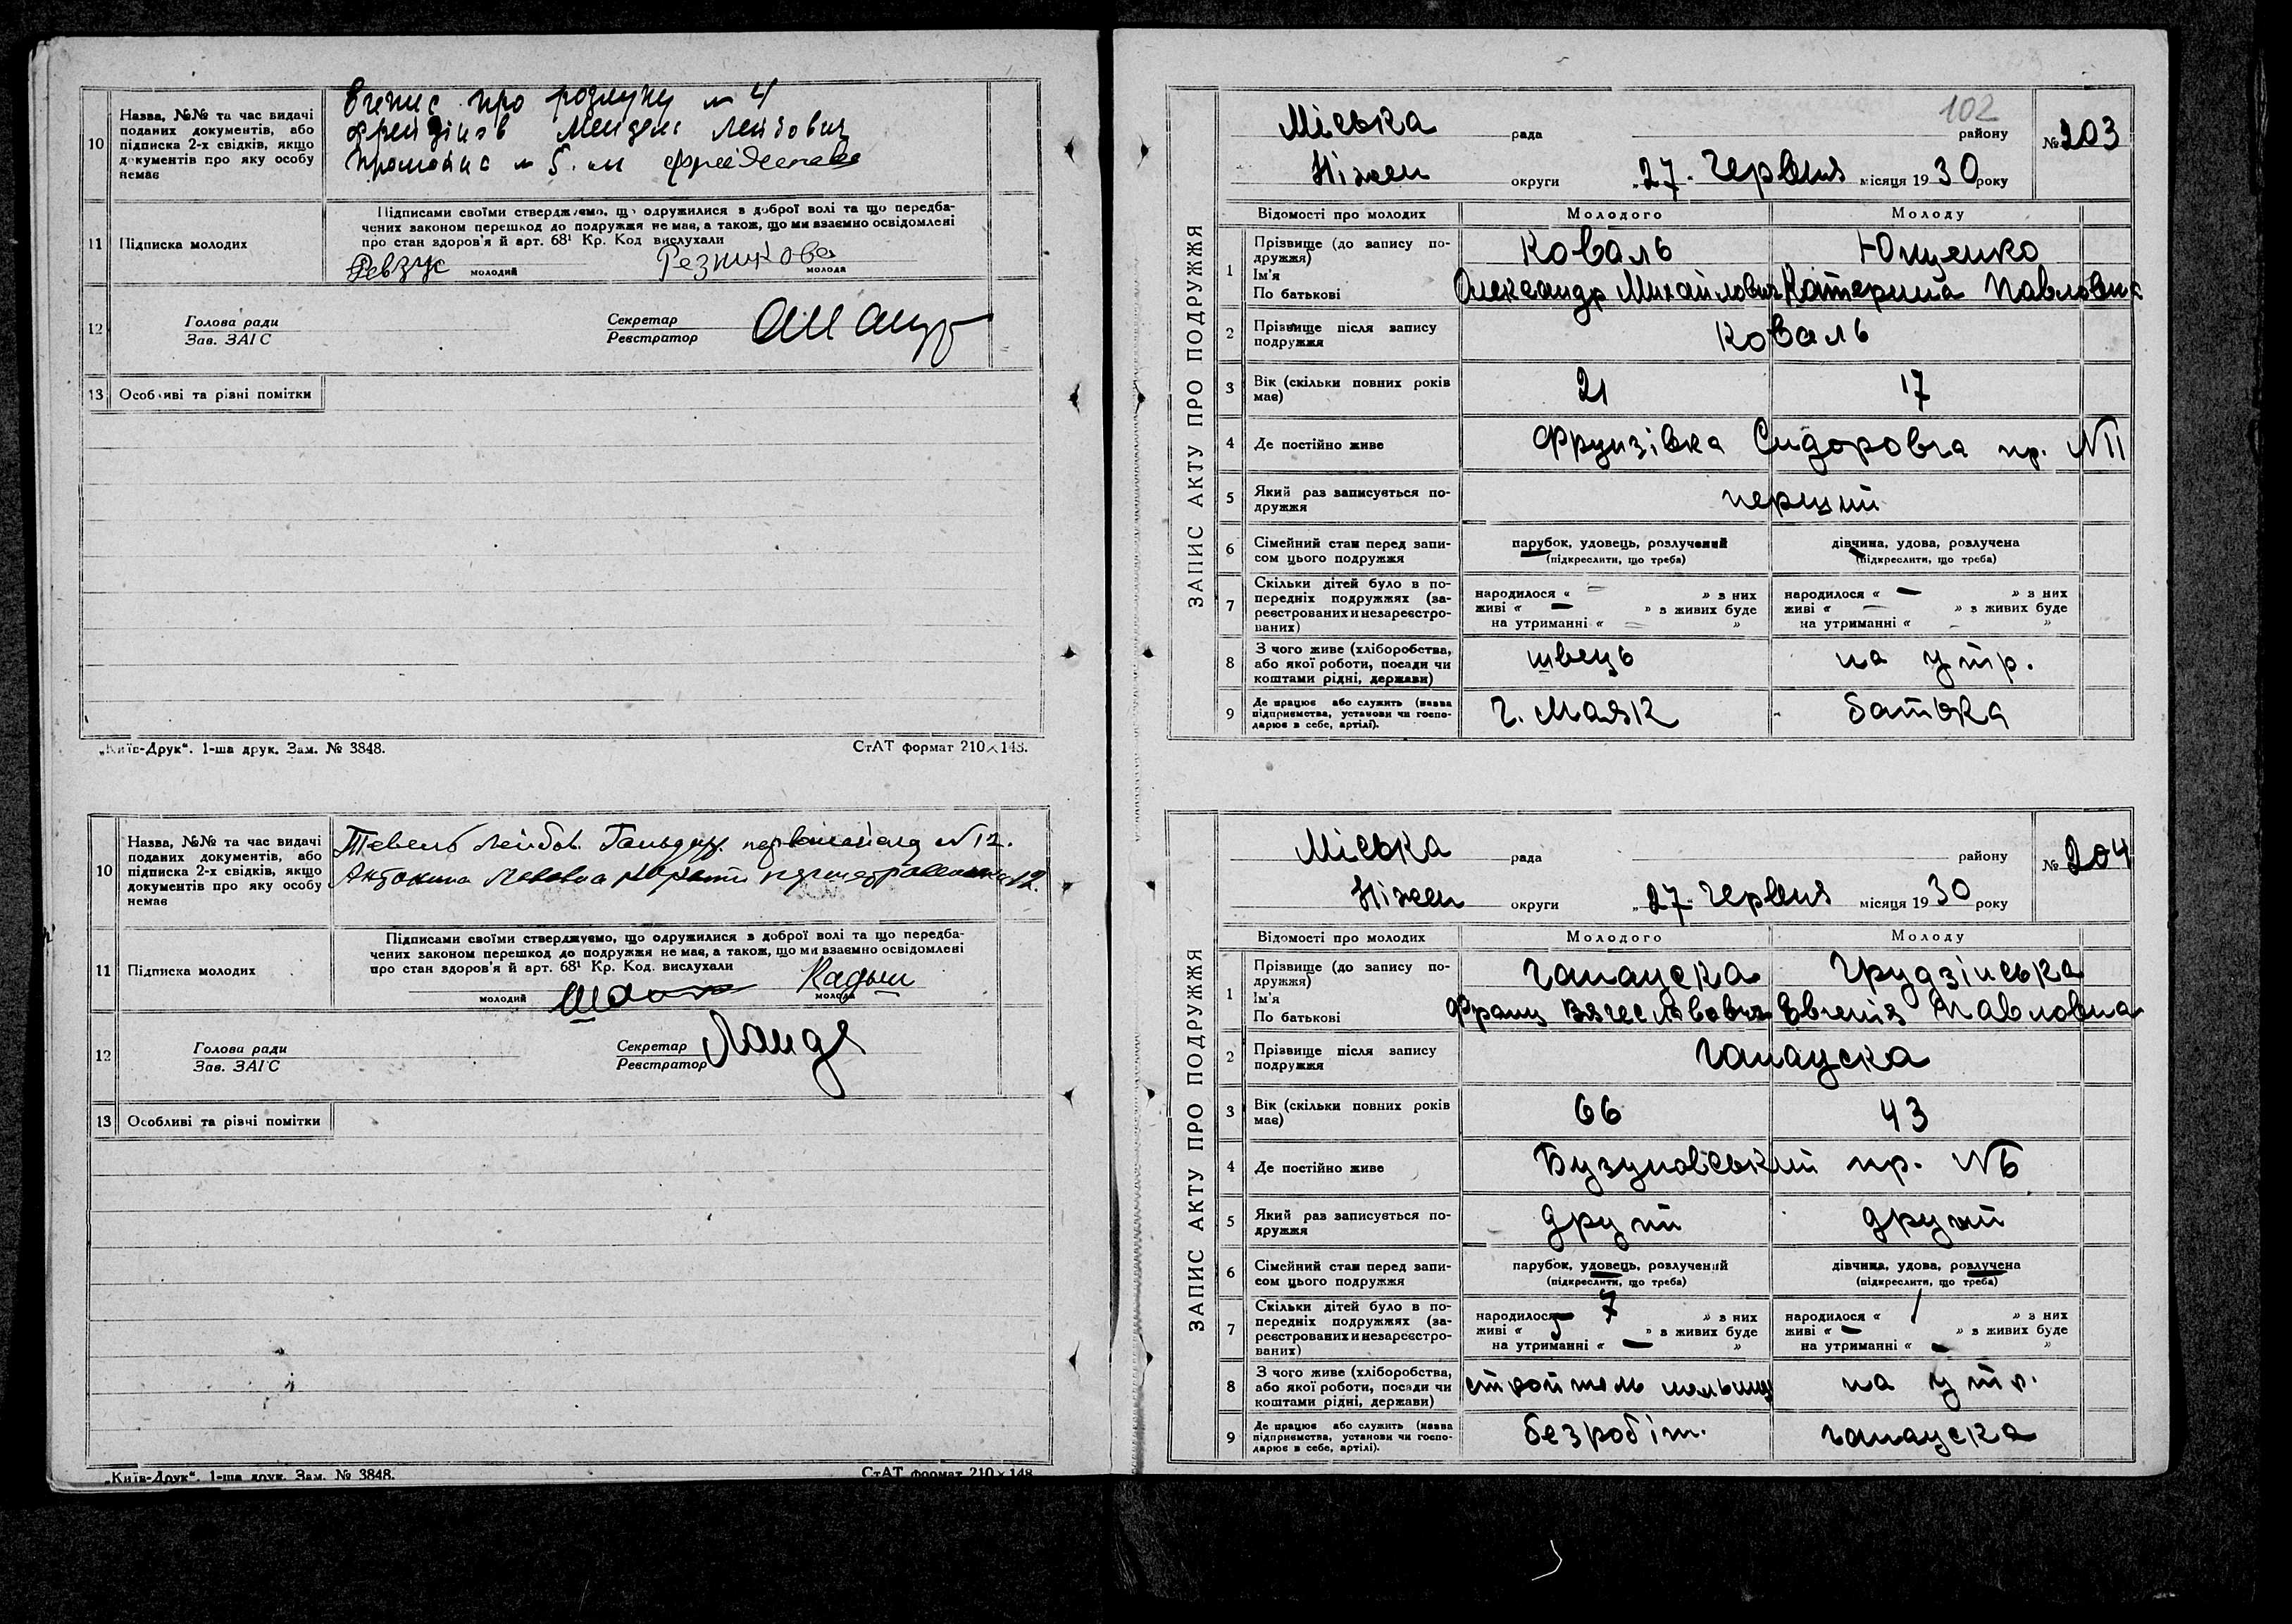 10
Назва, №№ та час видачі
поданих документів, або
підписка 2-х свідків, якщо
документів про яку особу
немає
про розлуку № 4
11
Підписка молодих
Підписами своїми стверджуємо, що одружилися з доброї волі та що передба-
чених законом перешкод до подружжя не має, а також, що ми взаємно освідомлені
про стан здоров'я й арт. 68¹ Кр. Код вислухали
Ревзус молодий Резникова молода
12
Голова ради
Зав. ЗАГС
Секретар
Реєстратор
13 Особливі та різні помітки
„Київ-Друк". 1-ша друк. Зам. № 3848. СтАТ формат 210×148.
10
Назва, №№ та час видачі
поданих документів, або
підписка 2-х свідків, якщо
документів про яку особу
немає
№ 12.
11
Підписка молодих
Підписами своїми стверджуємо, що одружилися з доброї волі та що передба-
чених законом перешкод до подружжя не має, а також, що ми взаємно освідомлені
про стан здоров'я й арт. 68¹ Кр. Код. вислухали
молодий Кадыш молода
12
Голова ради
Зав. ЗАГС
Секретар
Реєстратор
Ланда
13 Особливі та різні помітки
„Київ-Друк". 1-ша друк. Зам. № 3848. СтАТ формат 210×148
102
ЗАПИС АКТУ ПРО ПОДРУЖЖЯ
Міська рада району № 203
Ніжен округи „27" червня місяця 1930 року
Відомості про молодих Молодого Молоду
1
Прізвище (до запису по-
дружжя)
Ім'я
По батькові
Коваль Ющенко
Олександр Михайлович Катерина Павловна
2
Прізвище після запису
подружжя
Коваль
3
Вік (скільки повних років
має)
21 17
4 Де постійно живе Фрунзівка Сидоровка пр. № 11
5
Який раз записується по-
дружжя
перший
6
Сімейний стан перед запи-
сом цього подружжя
парубок, удовець, розлучений дівчина, удова, розлучена
(підкреслити, що треба) (підкреслити, що треба)
7
Скільки дітей було в по-
передніх подружжях (за-
реєстрованих и незареєстро-
ваних)
народилося « — » з них народилося « — » з них
живі « — » з живих буде живі « — » з живих буде
на утриманні « — » на утриманні « — »
8
З чого живе (хліборобства,
або якої роботи, посади чи
коштами рідні, держави)
швець на утр.
9
Де працює або служить (назва
підприємства, установи чи госпо-
дарює в себе, артілі).
г. Маяк батька
ЗАПИС АКТУ ПРО ПОДРУЖЖЯ
Міська рада району № 204
Ніжен округи „27" червня місяця 1930 року
Відомості про молодих Молодого Молоду
1
Прізвище (до запису по-
дружжя)
Ім'я
По батькові
Грудзінська
Франц Вячеславович Евгенія Павловна
2
Прізвище після запису
подружжя
3
Вік (скільки повних років
має)
66 43
4 Де постійно живе пр. № 6
5
Який раз записується по-
дружжя
другий другий
6
Сімейний стан перед запи-
сом цього подружжя
парубок, удовець, розлучений дівчина, удова, розлучена
(підкреслити, що треба) (підкреслити, що треба)
7
Скільки дітей було в по-
передніх подружжях (за-
реєстрованих и незареєстро-
ваних)
народилося 7 » з них народилося « 1 » з них
живі « 5 » з живих буде живі « — » з живих буде
на утриманні « — » на утриманні « — »
8
З чого живе (хліборобства,
або якої роботи, посади чи
коштами рідні, держави)
на утр.
9
Де працює або служить (назва
підприємства, установи чи госпо-
дарює в себе, артілі).
безробітн.